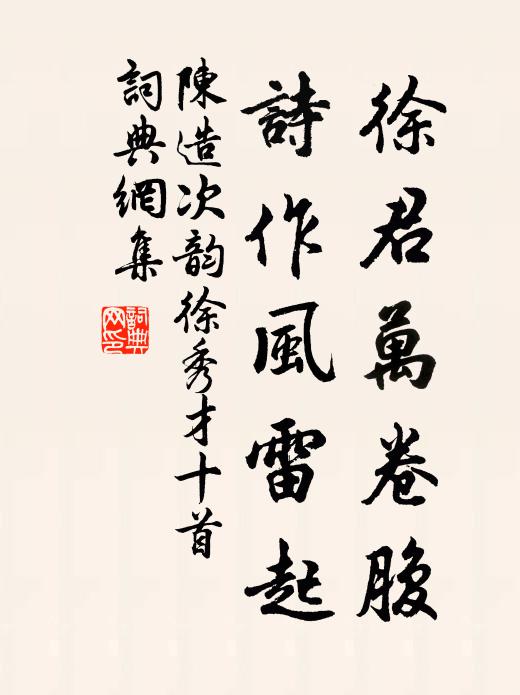 徐君萬卷腹
詩作風雷起
陳造次韵徐秀才十首
詞典網集
詞典
网印